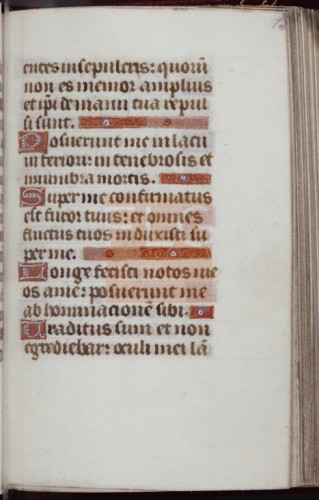 entes in sepulcris: quorū
non es memor amplius
et ipi de manu tua repul
si sunt.
Posuerunt me in lacu
inferiori: in tenebrosis et
in umbra mortis.
Super me confirmatus
est furor tuus: et omnes
fluctus tuos induxisti su
per me.
Longe fecisti notos me
os a me: posuerunt me
abhominacionē sibi.
Traditus sum et non
egrediebar: oculi mei lā